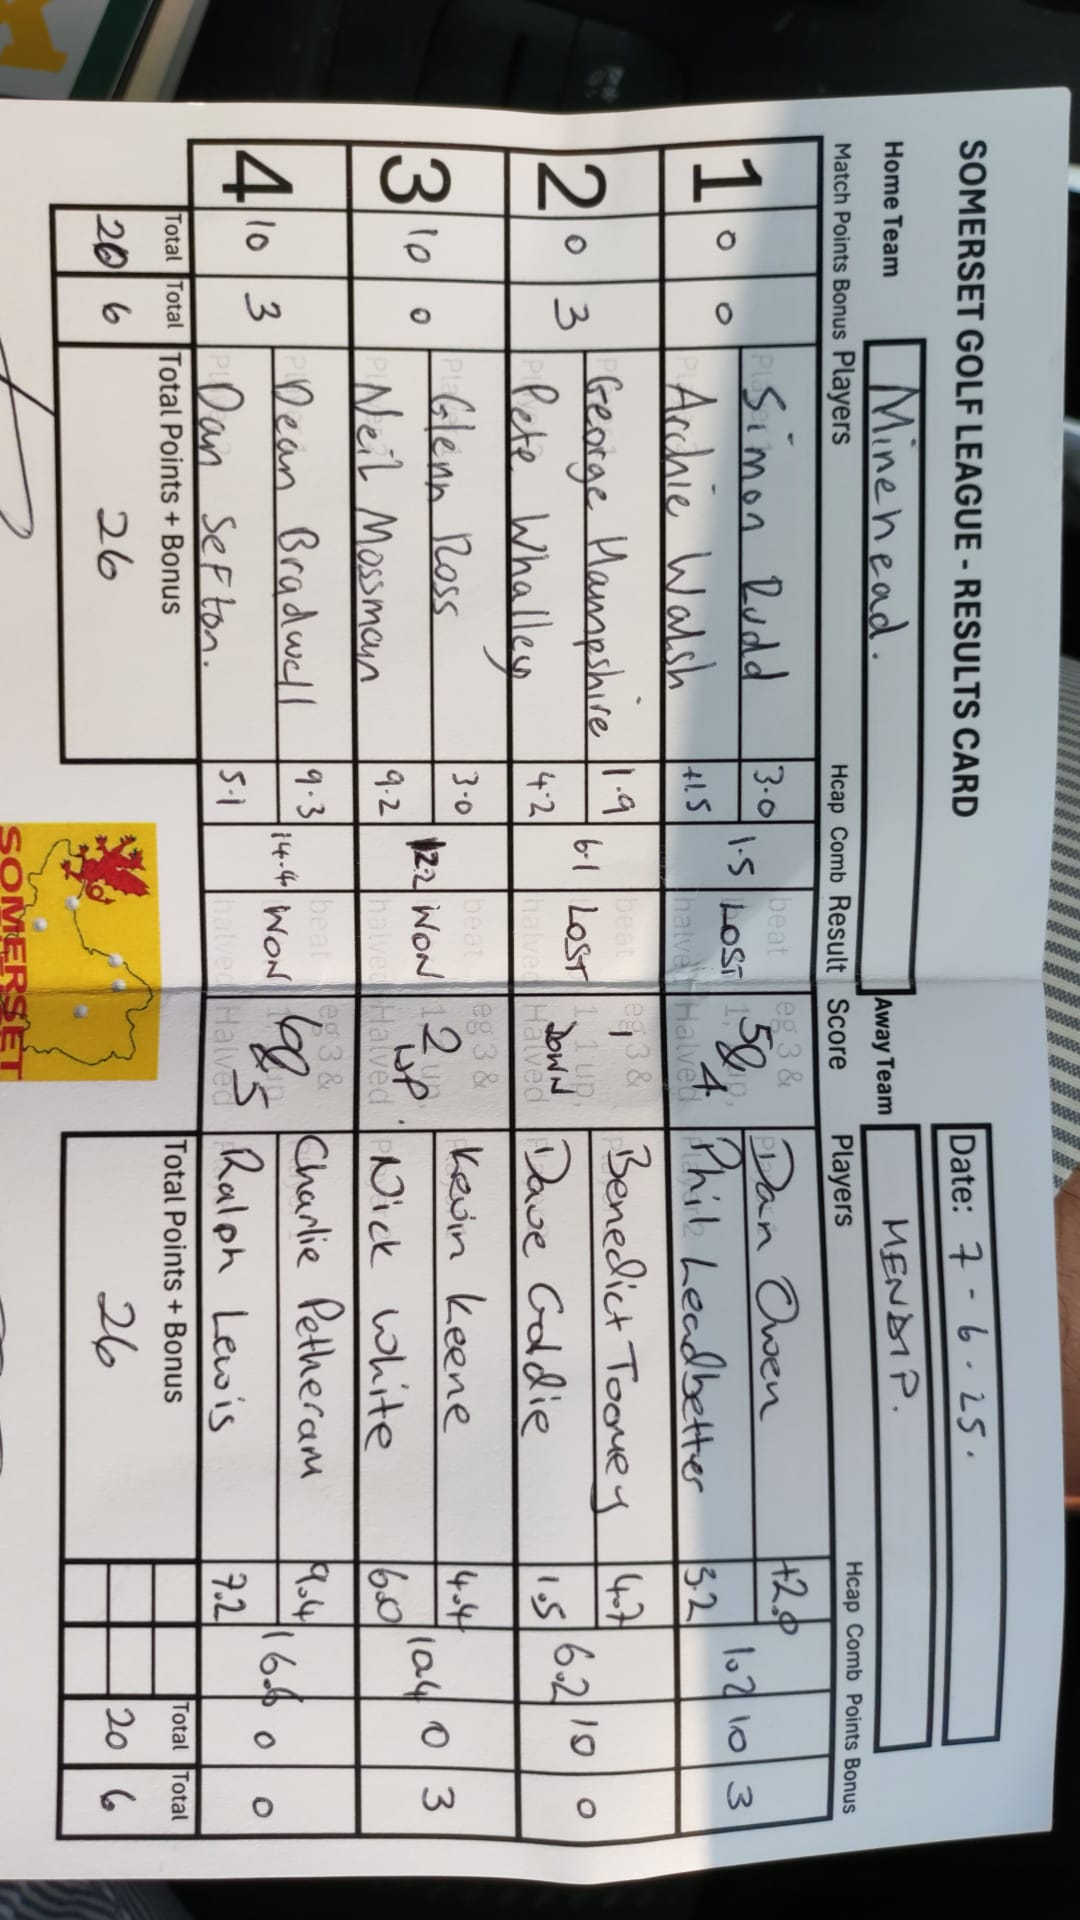 SOMERSET GOLF LEAGUE - RESULTS CARD
Date: 7-6.25.
Home Team Minehead. Away Team MENDIP.
Match Points Bonus Players Hcap Comb Result Score Players Hcap Comb Points Bonus
1 0 0 Simon Rudd 3.0 1.5 LOST 5&4 Dan Owen +2.0 1.2 10 3
Archie Walsh +1.5 Phil Leadbetter 3.2
2 0 3 George Hampshire 1.9 6.1 LOST 1 DOWN Benedict Toomey 4.7 6.2 10 0
Pete Whalley 4.2 Dave Goldie 1.5
3 10 0 Glenn Ross 3.0 12.2 WON 2 UP. Kevin Keene 4.4 10.4 0 3
Neil Mossman 9.2 Nick White 6.0
4 10 3 Dean Bradwell 9.3 14.4 WON 6&5 Charlie Petheram 9.4 16.6 0 0
Dan Sefton. 5.1 Ralph Lewis 7.2
Total Total Total Points + Bonus Total Points + Bonus Total Total
20 6 26 26 20 6
SOMERSET